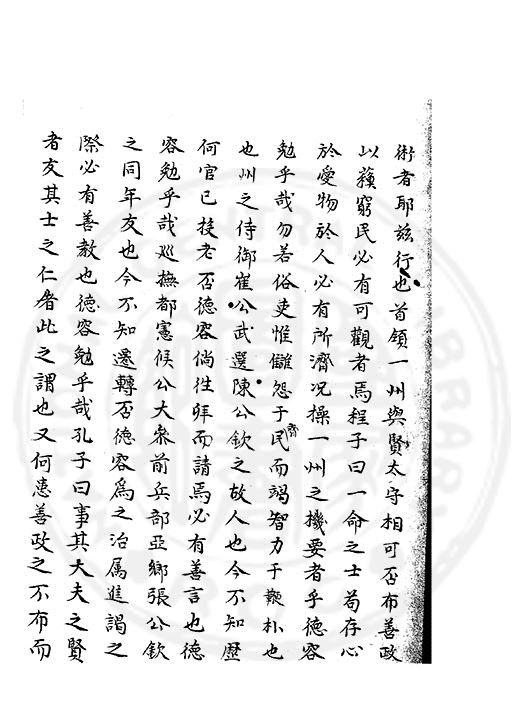 術者耶茲行也首領一州與賢太守相可否布善政
以蘓窮民必有可觀者焉程子曰一命之士苟存心
於愛物於人必有所濟况操一州之機要者乎德容
勉乎哉勿若俗吏惟讎怨于民而竭智力于鞭朴也
也州之侍御崔公武選陳公欽之故人也今不知歷
何官已投老否德容倘徃拜而請焉必有善言也德
容勉乎哉巡撫都憲候公大叅前兵部亞鄉張公欽
之同年友也今不知遷轉否德容爲之治属進謁之
際必有善教也德容勉乎哉孔子曰事其大夫之賢
者友其士之仁者此之謂也又何患善政之不布而